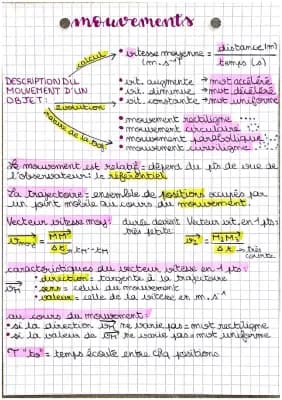 mouvements
calcul
• vitesse moyenne = distance (m) / temps (s)
(m.s⁻¹)
DESCRIPTION DU
MOUVEMENT D'UN
OBJET :
évolution
• vit. augmente → mvt accéléré
• vit. diminue → mvt décéléré
• vit. constante → mvt uniforme
nature de la
• mouvement rectiligne
• mouvement circulaire
• mouvement parabolique
• mouvement curviligne
Le mouvement est relatif : dépend du pts de vue de
l'observateur : le référentiel
La trajectoire : ensemble de positions occupés par
un point mobile au cours du mouvement.
Vecteur vitesse moy : durée doivent Vecteur vit. en 1 pts :
très
MM' / Δt
M₂M₃ / Δt → très
courte
caractéristiques du vecteur vitesse en 1 pts :
• direction = tangente à la trajectoire
• sens = celui du mouvement
• valeur = celle de la vitesse en m.s⁻¹
au cours du mouvement :
• si la direction ne varie pas = mvt rectiligne
• si la valeur de ne varie pas = mvt uniforme
= temps écoulé entre chq positions